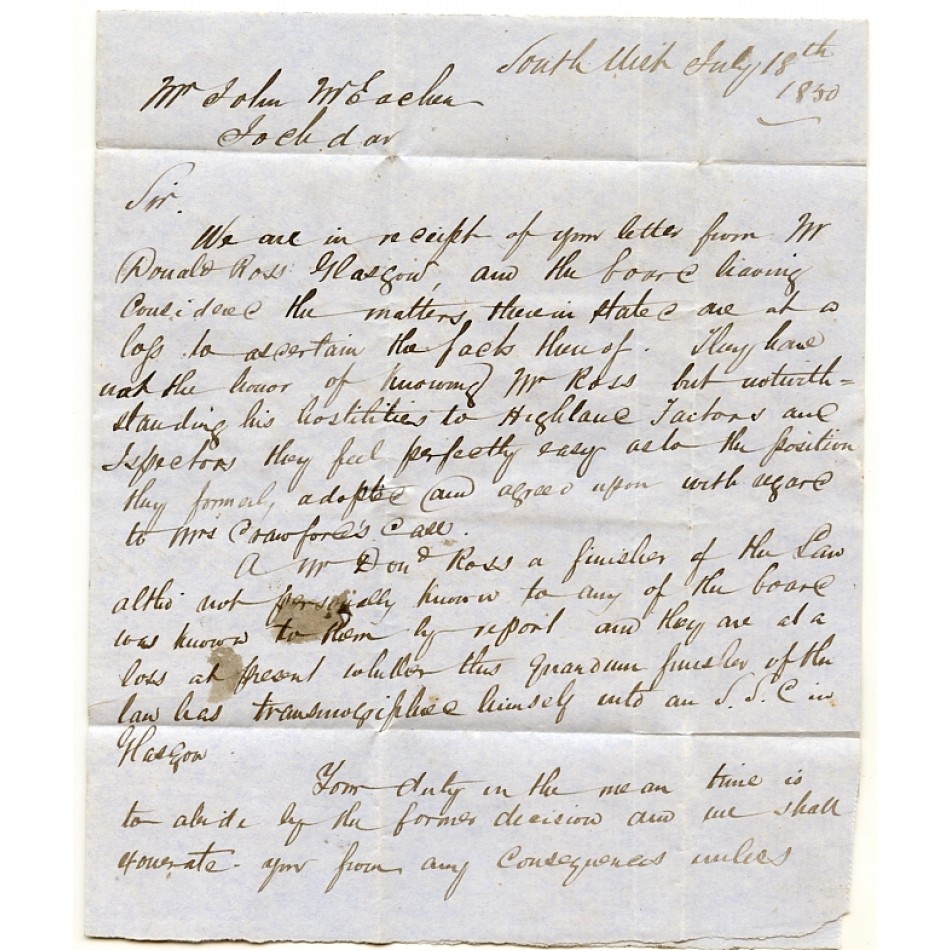 South Uist July 18th
1850
Mr John McEachen
Iochdar
Sir.
We are in receipt of your letter from Mr
Donald Ross Glasgow, and the board having
considered the matters therein stated are at a
loss to ascertain the facts thereof. They have
not the honor of knowing Mr Ross but notwith=
standing his hostilities to Highland Factors and
Ispectors they feel perfectly easy as to the position
they formerly adopted and agreed upon with regard
to Mrs Crawford's Case.
A Mr Dond Ross a finisher of the Law
altho' not personally known to any of the board
was known to them by report and they are at a
loss at present whether this quandum finisher of the
law has transmogriphied himself into an S.S.C in
Glasgow.
Your duty in the mean time is
to abide by the former decision and we shall
exonerate you from any consequences unless